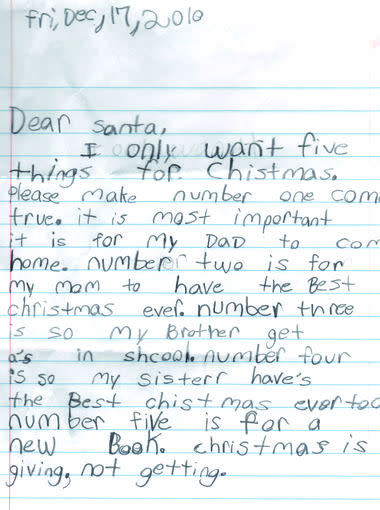 fri, Dec, 17, 2010
Dear santa,
I only want five
things for Chistmas.
please make number one com
true. it is most important
it is for my DaD to com
home. number two is for
my mom to have the Best
christmas ever. number three
is so my Brother get
a's in shcool. number four
is so my sisterr have's
the Best chistmas ever too
number five is for a
new Book. christmas is
giving, not getting.